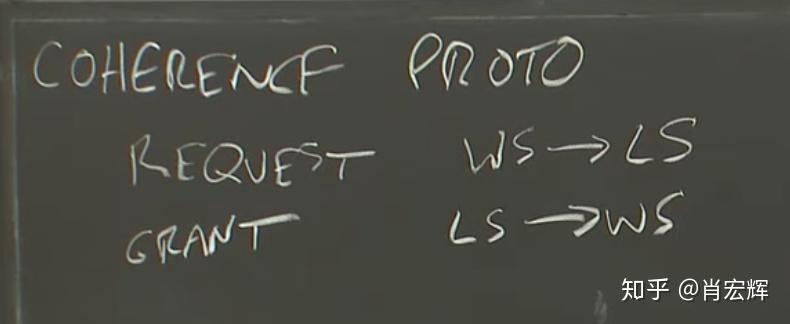 COHERENCE PROTO
REQUEST WS → LS
GRANT LS → WS
知乎 @肖宏辉